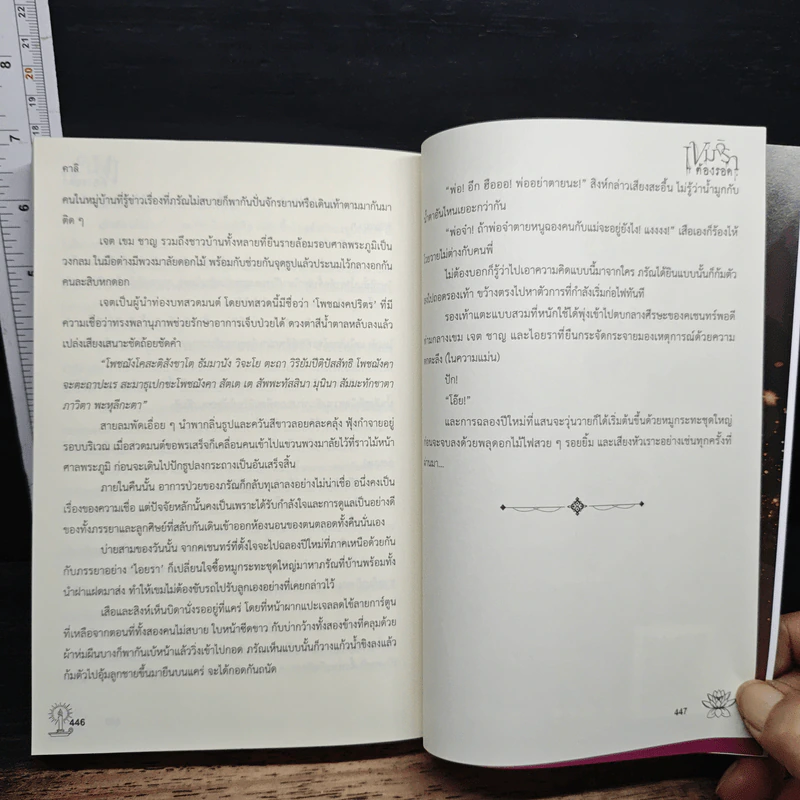 8
7
6
22
21
20
19
18
17
คาธิ
คนในหมู่บ้านที่รู้ข่าวเรื่องที่ภรัณไม่สบายก็พากันปั่นจักรยานหรือเดินเท้าตามมากันมา
ติด ๆ
เจต เขม ชาญ รวมถึงชาวบ้านทั้งหลายที่ยืนรายล้อมรอบศาลพระภูมิเป็น
วงกลม ในมือต่างมีพวงมาลัยดอกไม้ พร้อมกับช่วยกันจุดธูปแล้วประนมไว้กลางอกกัน
คนละสิบหกดอก
เจตเป็นผู้นำท่องบทสวดมนต์ โดยบทสวดนี้มีชื่อว่า 'โพชฌงคปริตร' ที่มี
ความเชื่อว่าทรงพลานุภาพช่วยรักษาอาการเจ็บป่วยได้ ดวงตาสีน้ำตาลหลับลงแล้ว
เปล่งเสียงเสนาะชัดถ้อยชัดคำ
"โพชฌังโคสะติสังขาโต ธัมมานัง วิจะโย ตะถา วิริยัมปีติปัสสัทธิ โพชฌังคา
จะตะถาปะเร สะมาธุเปกขะโพชฌังคา สัตเต เต สัพพะทัสสินา มุนินา สัมมะทักขาตา
ภาวิตา พะหุลีกะตา"
สายลมพัดเอื่อย ๆ นำพากลิ่นธูปและควันสีขาวลอยคละคลุ้ง ฟุ้งกำจายอยู่
รอบบริเวณ เมื่อสวดมนต์ขอพรเสร็จก็เคลื่อนคนเข้าไปแขวนพวงมาลัยไว้ที่ราวไม้หน้า
ศาลพระภูมิ ก่อนจะเดินไปปักธูปลงกระถางเป็นอันเสร็จสิ้น
ภายในคืนนั้น อาการป่วยของภรัณก็กลับทุเลาลงอย่างไม่น่าเชื่อ อนึ่งคงเป็น
เรื่องของความเชื่อ แต่ปัจจัยหลักนั้นคงเป็นเพราะได้รับกำลังใจและการดูแลเป็นอย่างดี
ของทั้งภรรยาและลูกศิษย์ที่สลับกันเดินเข้าออกห้องนอนของตนตลอดทั้งคืนนั่นเอง
บ่ายสามของวันนั้น จากคเชนทร์ที่ตั้งใจจะไปฉลองปีใหม่ที่ภาคเหนือด้วยกัน
กับภรรยาอย่าง 'ไอยรา' ก็เปลี่ยนใจซื้อหมูกระทะชุดใหญ่มาหาภรัณที่บ้านพร้อมทั้ง
นำฝาแฝดมาส่ง ทำให้เขมไม่ต้องขับรถไปรับลูกเองอย่างที่เคยกล่าวไว้
เสือและสิงห์เห็นบิดานั่งรออยู่ที่แคร่ โดยที่หน้าผากแปะเจลลดไข้ลายการ์ตูน
ที่เหลือจากตอนที่ทั้งสองคนไม่สบาย ใบหน้าซีดขาว กับบ่ากว้างทั้งสองข้างที่คลุมด้วย
ผ้าห่มผืนบางก็พากันเบ้หน้าแล้ววิ่งเข้าไปกอด ภรัณเห็นแบบนั้นก็วางแก้วน้ำขิงลงแล้ว
ก้มตัวไปอุ้มลูกชายขึ้นมายืนบนแคร่ จะได้กอดกันถนัด
446
เขมจิรา
ต้องรอด
"พ่อ! ฮึก ฮือออ! พ่ออย่าตายนะ!" สิงห์กล่าวเสียงสะอื้น ไม่รู้ว่าน้ำมูกกับ
น้ำตาอันไหนเยอะกว่ากัน
"พ่อจ๋า! ถ้าพ่อจ๋าตายหนูฉองคนกับแม่จะอยู่ยังไง! แงงงง!" เสือเองก็ร้องไห้
โวยวายไม่ต่างกับคนพี่
ไม่ต้องบอกก็รู้ว่าไปเอาความคิดแบบนี้มาจากใคร ภรัณได้ยินแบบนั้นก็ก้มตัว
ลงไปถอดรองเท้า ขว้างตรงไปหาตัวการที่กำลังเริ่มก่อไฟทันที
รองเท้าแตะแบบสวมที่หนักใช้ได้พุ่งเข้าไปตบกลางศีรษะของคเชนทร์พอดี
ท่ามกลางเขม เจต ชาญ และไอยราที่ยืนกระจัดกระจายมองเหตุการณ์ด้วยความ
ตกตะลึง (ในความแม่น)
ปัก!
"โอ๊ย!"
และการฉลองปีใหม่ที่แสนจะวุ่นวายก็ได้เริ่มต้นขึ้นด้วยหมูกระทะชุดใหญ่
ก่อนจะจบลงด้วยพลุดอกไม้ไฟสวย ๆ รอยยิ้ม และเสียงหัวเราะอย่างเช่นทุกครั้งที่
ผ่านมา...
447